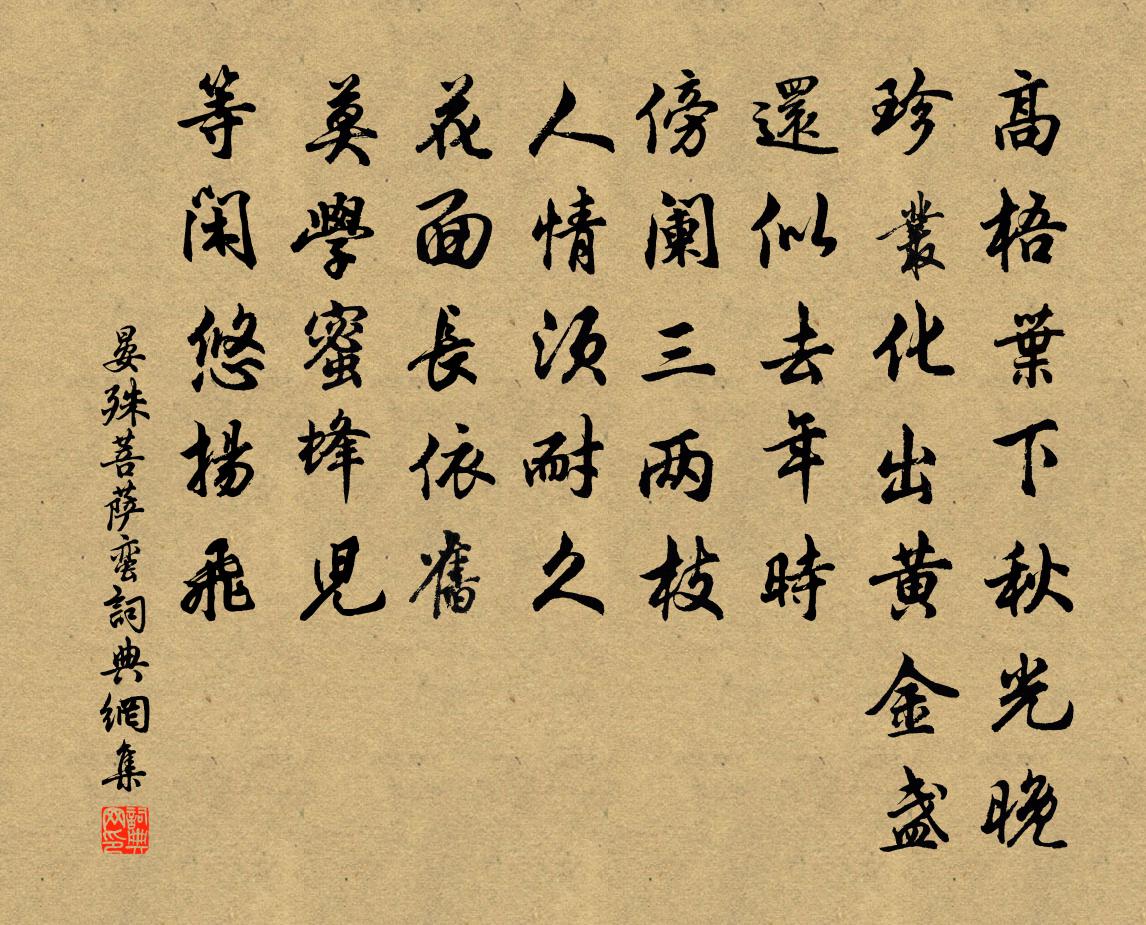 高梧葉下秋光晚
珍叢化出黄金盏
還似去年時
傍阑三两枝
人情須耐久
花面長依舊
莫學蜜蜂兒
等闲悠揚飛
晏殊菩萨蛮詞典網集
詞典网印